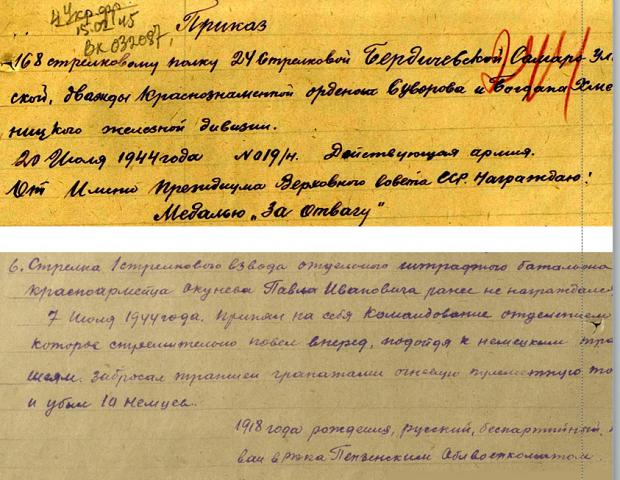 4 Укр. фр.
15.02.45
Вх 032087,
Приказ
168 стрелковому полку 24 стрелковой Бердичевской Самаро-Ул
ской, дважды Краснознаменной орденов Суворова и Богдана Хме
ницкого железной дивизии.
20 Июля 1944 года № 019/н. Действующая армия.
От Имени Президиума Верховного совета ССР. Награждаю:
Медалью „За Отвагу"
6. Стрелка 1 стрелкового взвода отдельного штрафного баталиона
красноармейца Окунева Павла Ивановича ранее не награждался
7 Июля 1944 года. Принял на себя командование отделением
которое стремительно повел вперед, подойдя к немецким тра
шеям. забросал траншеи гранатами огневую пулеметную то
и убил 10 Немцев.
1918 года рождения, русский, беспартийный.
ван в РККА Пензенским Облвоенкоматом.